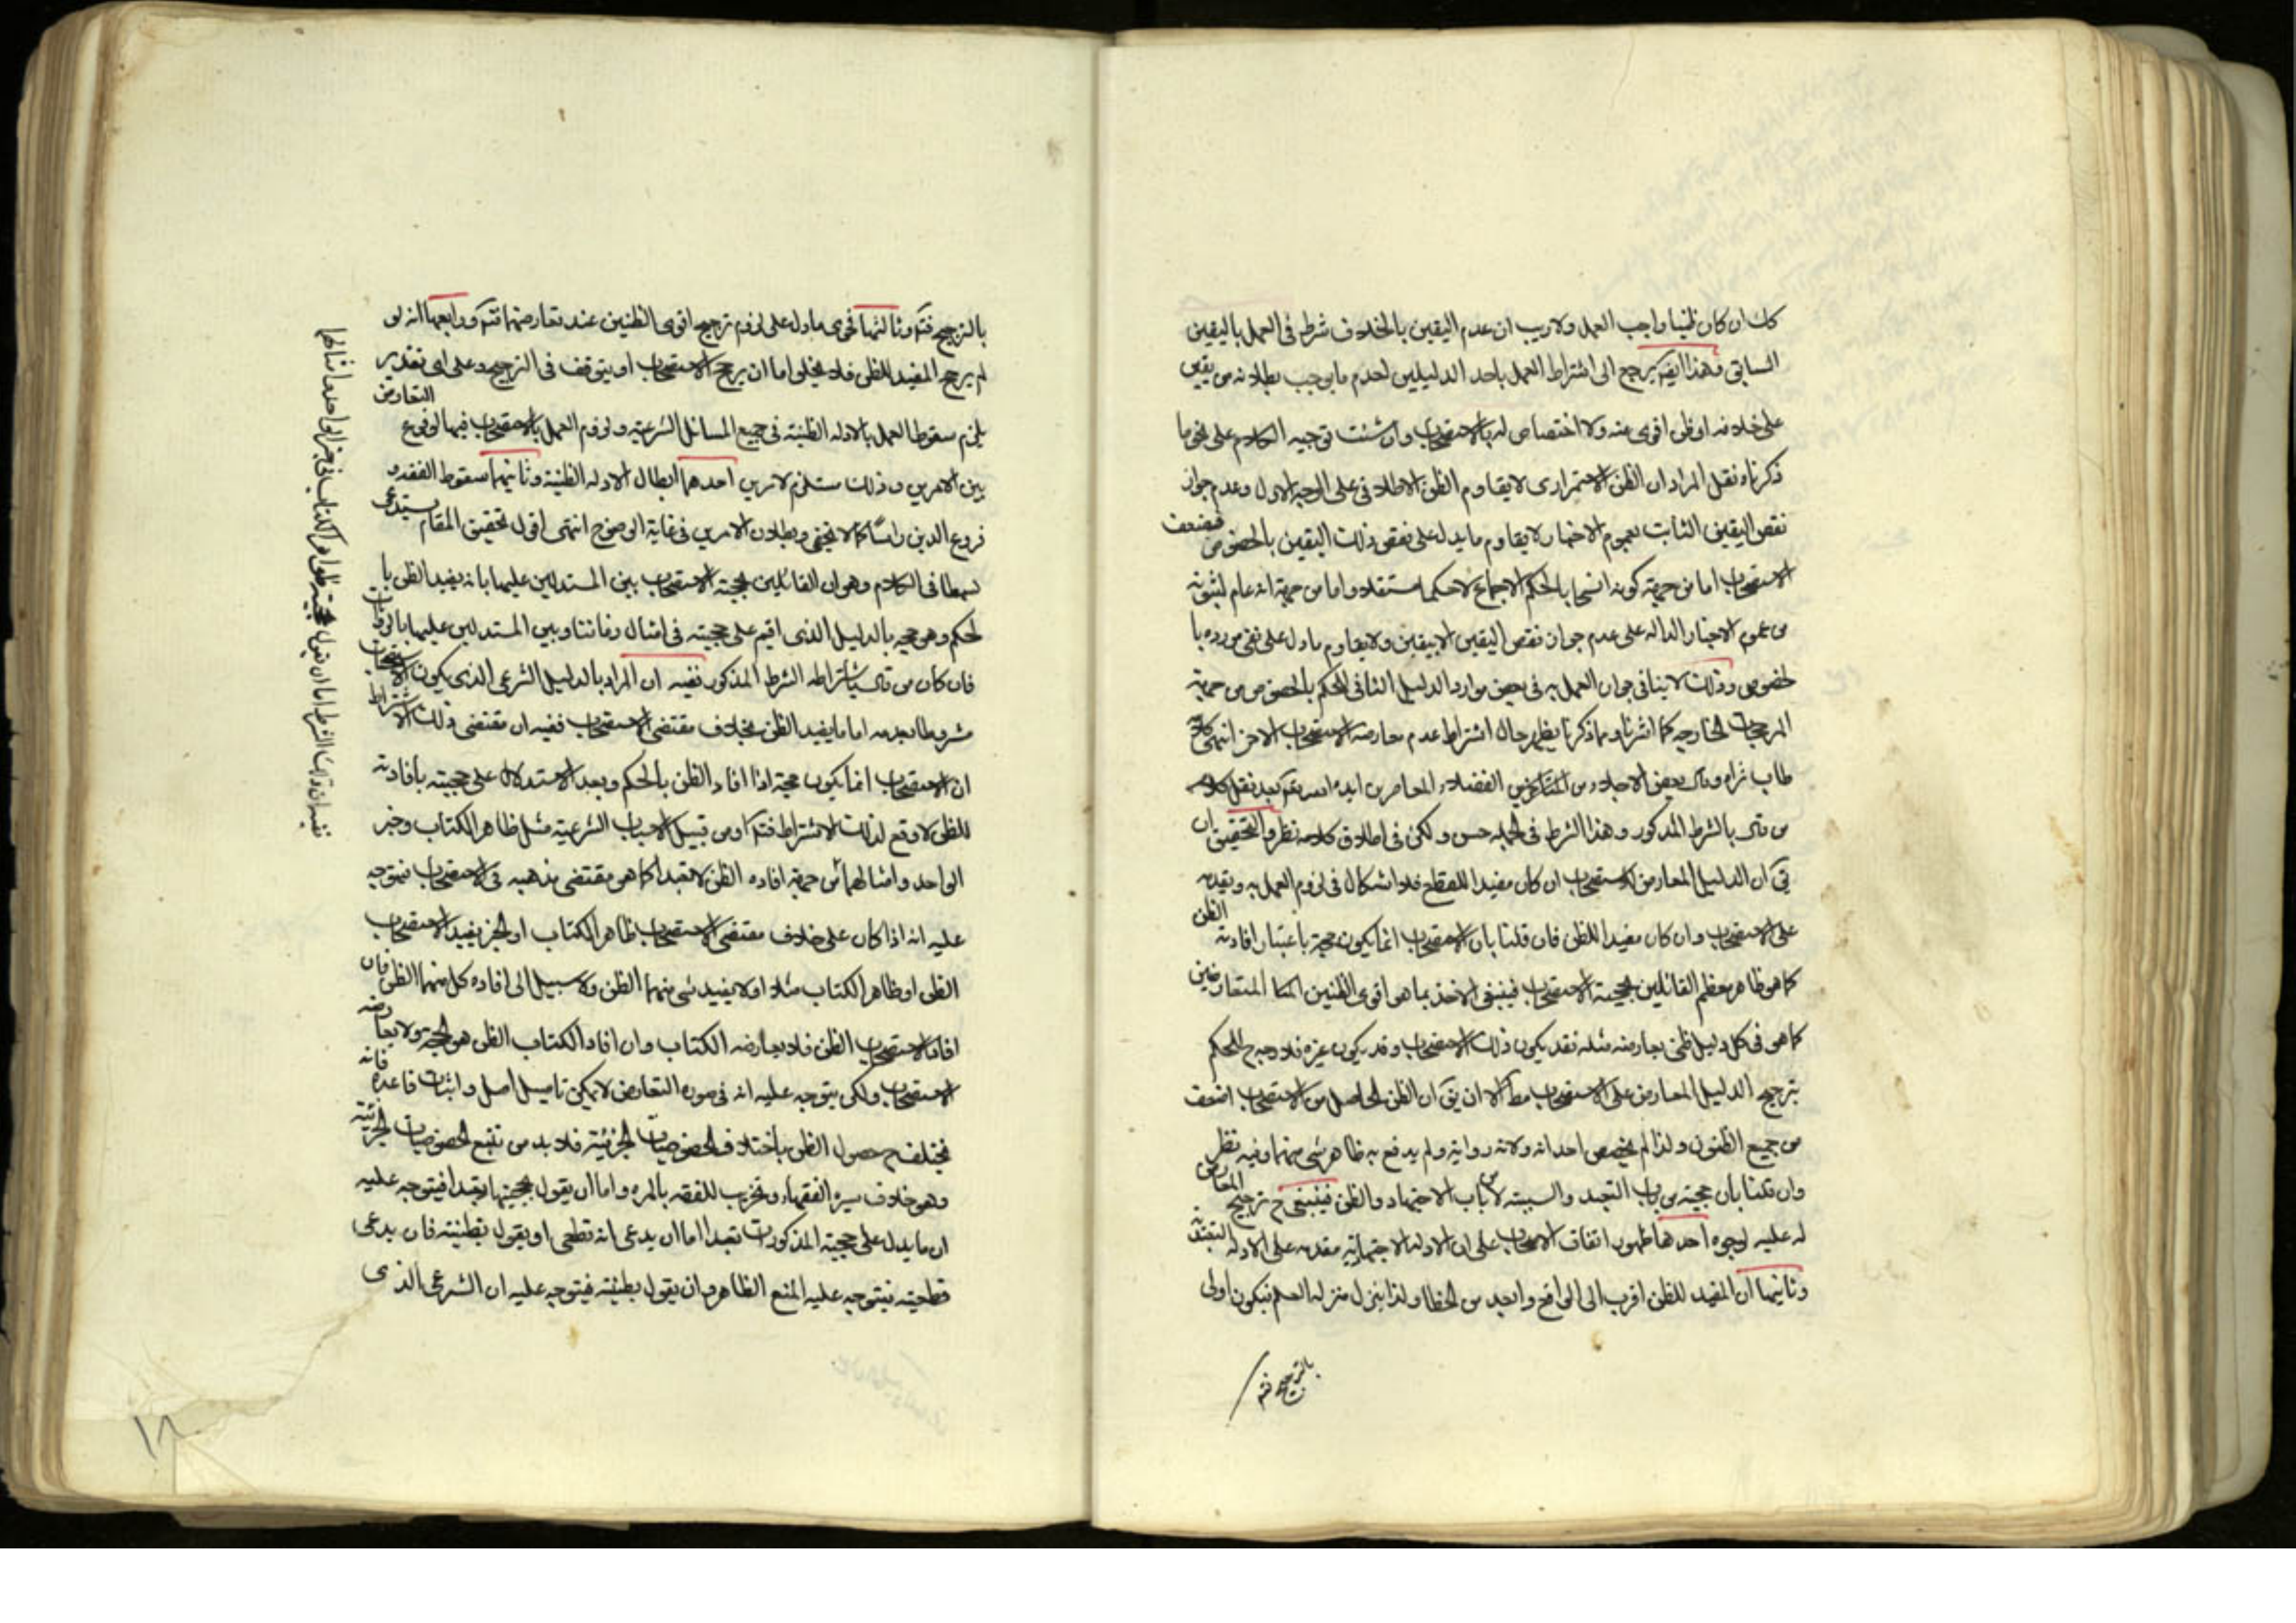 كك ان كان ظنيا واجب العمل ولا ريب ان عدم اليقين بالخلاف شرط في العمل باليقين
السابق فهذا ايضا يرجع الى اشتراط العمل باحد الدليلين لعدم ما يوجب بطلانه من يقين
على خلافه او ظن اقوى منه ولا اختصاص له بالاستصحاب وان شئت توجيه الكلام على نحو ما
ذكرناه نقل المراد ان الظن الاستمرارى لا يقاوم الظن الاطلاقى على الوجه الاول وعدم جواز
نقض اليقين الثابت بعموم الاخبار لا يقاوم ما يدل على نقض ذلك اليقين بالخصوص فيضعف
الاستصحاب اما من جهة كونه انسحابا لحكم الاجماع لا حكما مستقلا واما من جهة انه عام لثبوته
من عموم الاخبار الداله على عدم جواز نقض اليقين الا بيقين ولا يقاوم ما دل على نفى مورده با
لخصوص وذلك لا ينافى جواز العمل به فى بعض موارد الدليل الثانى للحكم بالخصوص من جهة
المرجحات الخارجه كما اشرنا ومما ذكرنا يظهر حال اشتراط عدم معارضه الاستصحاب الاخر انتهى كلامه
طاب ثراه وقال بعض الاجلاء من المتاخرين الفضلاء المعاصرين ايده الله بعد نقل كلام
من قال بالشرط المذكور وهذا الشرط فى الجمله حسن ولكن فى اطلاق كلامه نظر والتحقيق ان
يق ان الدليل المعارض للاستصحاب ان كان مفيدا للقطع فلا اشكال فى لزوم العمل به وتقديمه
على الاستصحاب وان كان مفيدا للظن فان قلنا بان الاستصحاب انما يكون حجة باعتبار افادته الظن
كما هو ظاهر معظم القائلين بحجية الاستصحاب فينبغى الاخذ بما هو اقوى الظنين المتعارضين
كما هو فى كل دليل ظنى يعارضه مثله فقد يكون ذلك الاستصحاب وقد يكون غيره فلا وجه ح للحكم
بترجيح الدليل المعارض على الاستصحاب مط الا ان يق ان الظن الحاصل من الاستصحاب اضعف
من جميع الظنون ولذا لم يخصص احد آية ولا رواية ولم يدفع به ظاهر شى منهما وفيه نظر
وان قلنا بان حجيته من باب التعبد والسببية لا من باب الاجتهاد والظن فينبغى ح ترجيح المعارض
له عليه لوجوه احدها ظهور اتفاق الاصحاب على ان الادلة الاجتهاديه مقدمه على الادله التعبديه
وثانيها ان المفيد للظن اقرب الى الواقع وابعد من الخطا ولذا ينزل منزله العلم فيكون اولى
بالترجيح فتم
بالترجيح فتم وثالثها فحوى ما دل على لزوم ترجيح اقوى الظنين عند تعارضهما فتم ورابعها انه لو
لم يرجح المفيد للظن فلا يخلو اما ان يرجح الاستصحاب او يتوقف فى الترجيح وعلى اى تقدير
يلزم سقوط العمل بالادله الظنية فى جميع المسائل الشرعيه ولزوم العمل بالاستصحاب فيها لوقوع التعارض
بين الامرين وذلك مستلزم لامرين احدهما ابطال الادله الظنية وثانيهما سقوط الفقه و
فروع الدين راسا كما لا يخفى وبطلان الامرين فى غاية الوضوح انتهى اقول تحقيق المقام يستدعى
بسطا فى الكلام وهو ان القائلين بحجيه الاستصحاب بين المستدلين عليها بانه يفيد الظن با
لحكم وهو حجه بالدليل الذى اقيم على حجيته فى امثال زماننا وبين المستدلين عليها بالروايات
فان كان من قال باشتراطه الشرط المذكور ففيه ان المراد بالدليل الشرعى الذى يكون الاستصحاب
مشروطا بعدمه اما ما يفيد الظن بخلاف مقتضى الاستصحاب ففيه ان مقتضى ذلك الاشتراط
ان الاستصحاب انما يكون حجة اذا افاد الظن بالحكم وبعد الاستدلال على حجيته بافادته
للظن لا وقع لذلك الاشتراط فتم او من قبيل الاسباب الشرعية مثل ظاهر الكتاب وخبر
الواحد وامثالهما من جهة افاده الظن لا تعبدا كما هو مقتضى مذهبه فى الاستصحاب فيتوجه
عليه انه اذا كان على خلاف مقتضى الاستصحاب ظاهر الكتاب او الخبر يفيد الاستصحاب
الظن او ظاهر الكتاب مثلا او لا يفيد شى منهما الظن ولا سبيل الى افاده كل منهما الظن فان
افاد الاستصحاب الظن فلا يعارضه الكتاب وان افاد الكتاب الظن هو الحجه ولا يعارضه
الاستصحاب ولكن يتوجه عليه انه فى صورة التعارض لا يمكن تاصيل اصل واثبات قاعده فانه
يختلف ح حصول الظن باختلاف الخصوصيات الجزئية فلا بد من تتبع الخصوصيات الجزئية
وهو خلاف سيرة الفقهاء ومخرب للفقه بالمره واما ان يقول بحجيتها تعبدا فيتوجه عليه
ان ما يدل على حجيته المذكورات تعبدا اما ان يدعى انه قطعى او يقول بظنيته فان يدعى
قطعيته فيتوجه عليه المنع الظاهر وان يقول بظنيته فيتوجه عليه ان الشرعى الذى
١٨